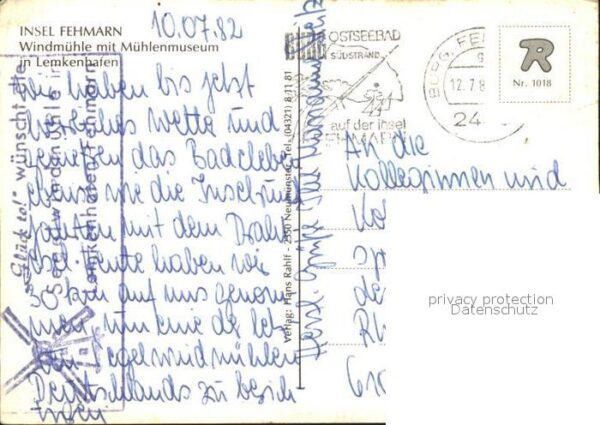 INSEL FEHMARN
Windmühle mit Mühlenmuseum
in Lemkenhafen
10.07.82
Wir haben bis jetzt
herrliches Wetter und
genießen das Badeleben
ebenso wie die Inselrund
fahrten mit dem Draht
esel. Heute haben wir
30 km auf uns genom
men um eine der letz
ten Segelwindmühlen
Deutschlands zu besich
tigen
„Glück to!" wünscht die
Segelwindmühle in
Lemkenhafen/Fehmarn
Verlag: Hans Rahlf - 2350 Neumünster, Tel. (04321) 8 11 81
Herzl. Grüße
OSTSEEBAD
SÜDSTRAND
auf der Insel
FEHMARN
BURG, FEH
12.7.8
24
R
Nr. 1018
An die
Kolleginnen und
Kol
privacy protection
Datenschutz